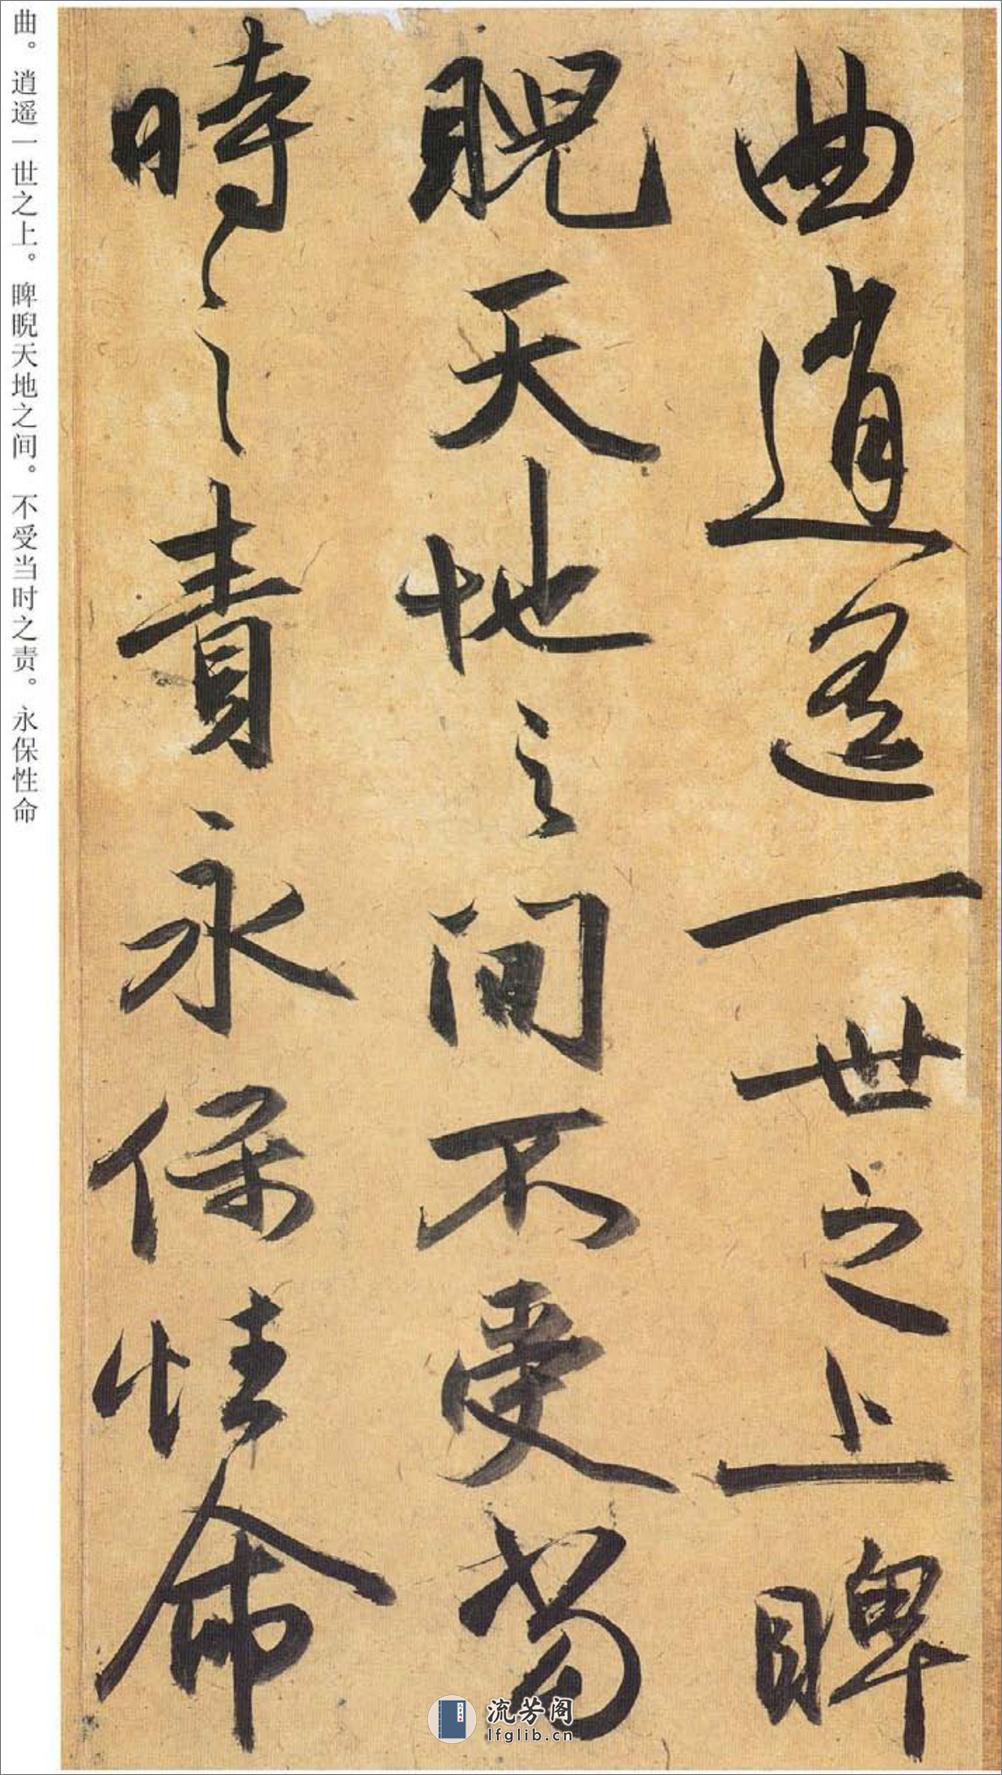 曲逍遥一世之上睥
睨天地之間不受當
時之責永保性命
曲。逍遥一世之上。睥睨天地之间。不受当时之责。永保性命
流芳阁
lfglib.cn